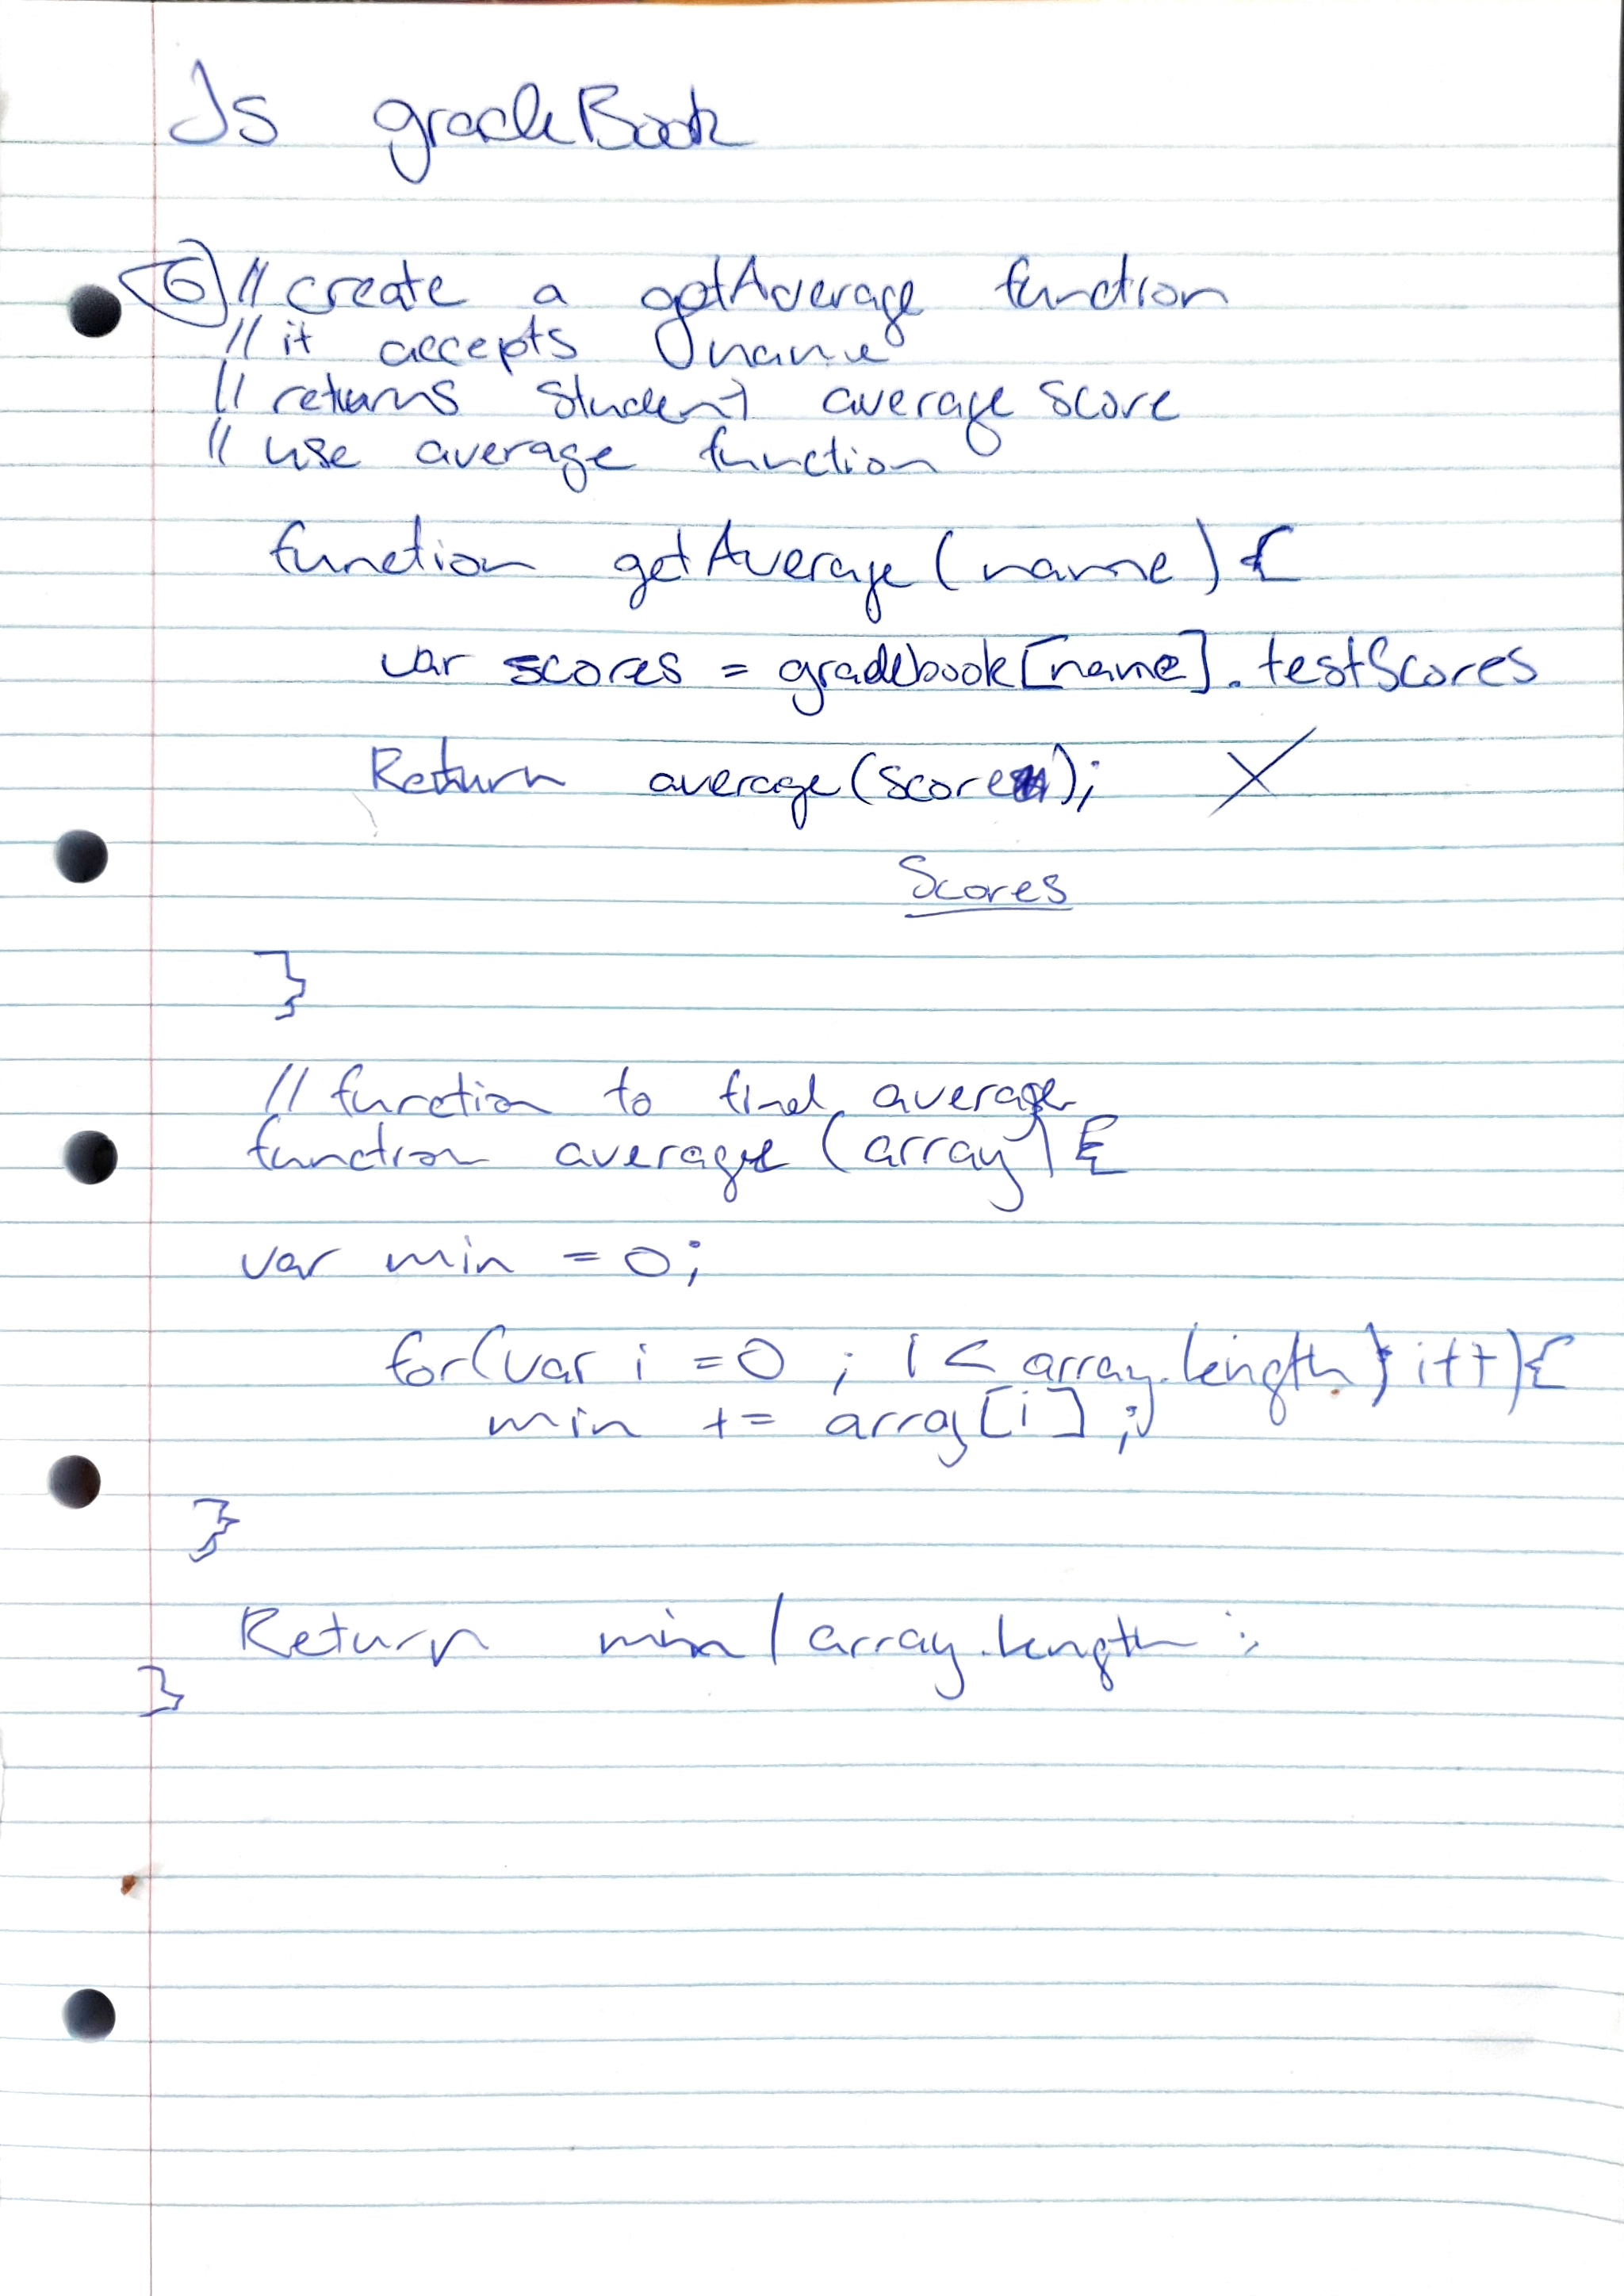 Js gradeBook
6 // create a getAverage function
// it accepts name
// returns student average score
// use average function
function getAverage (name) {
var scores = gradebook[name].testScores
Return average(score); X
Scores
}
// function to find average
function average (array) {
var min = 0;
for(var i = 0 ; i < array.length; i++){
min += array[i];
}
Return min / array.length ;
}